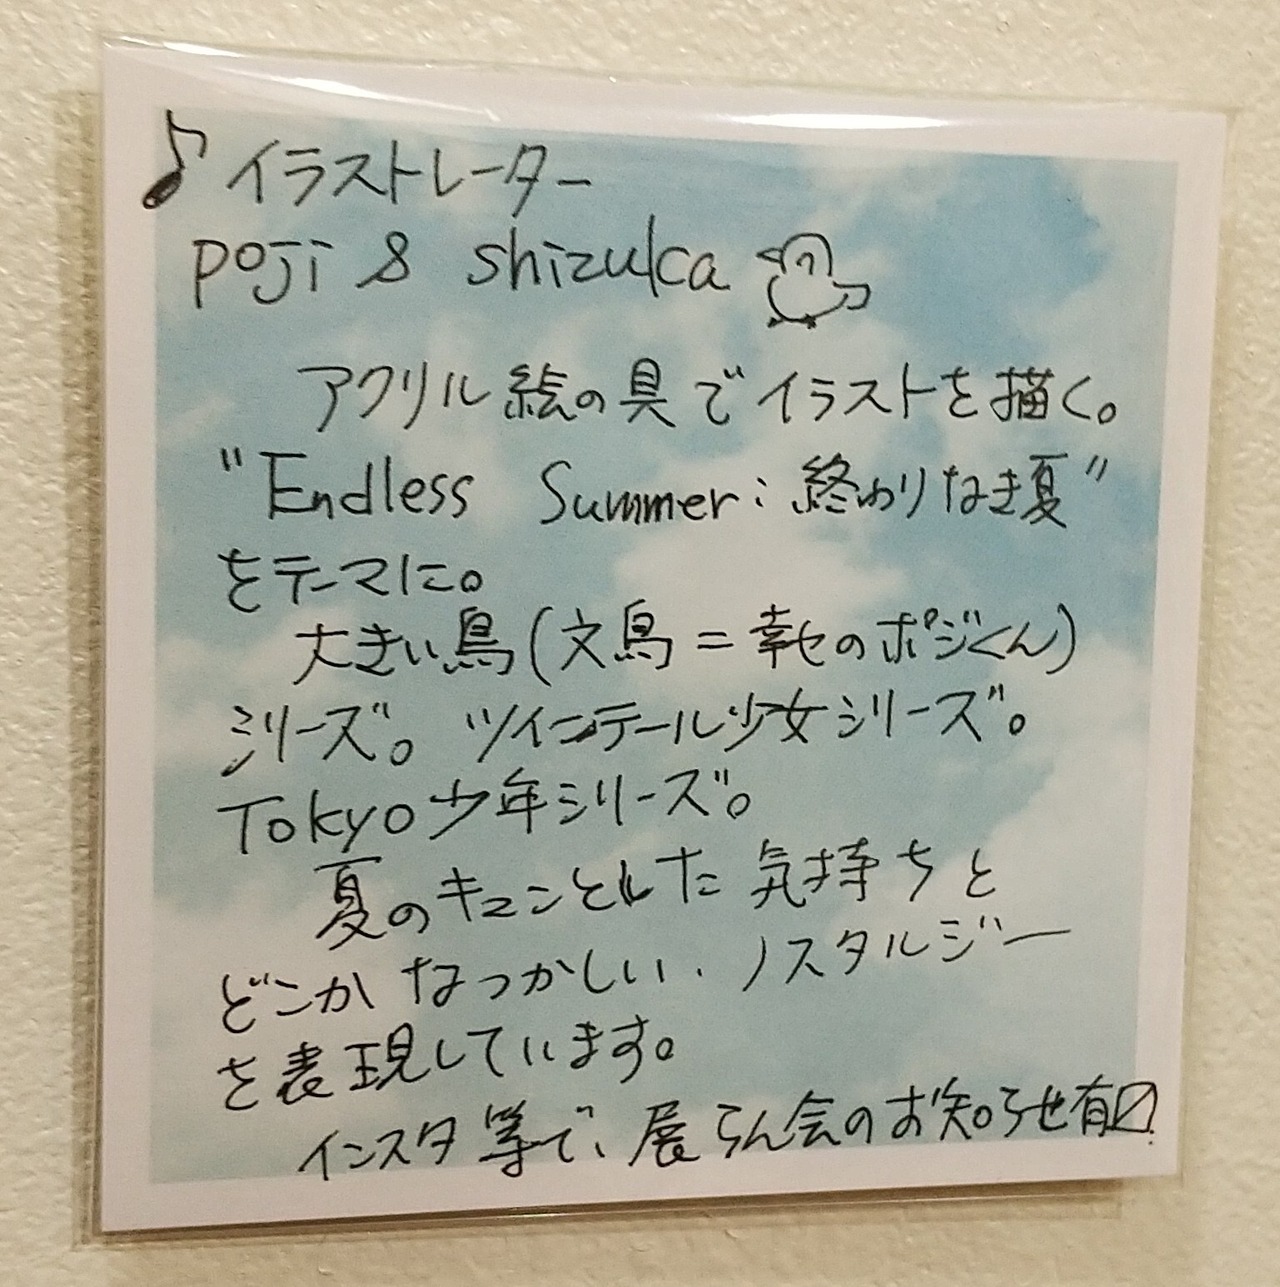 ♪イラストレーター
poji & shizuka
アクリル絵の具でイラストを描く。
"Endless Summer:終わりなき夏"
をテーマに。
大きい鳥(文鳥=幸せのポジくん)
シリーズ。ツインテール少女シリーズ。
Tokyo少年シリーズ。
夏のキュンとした気持ちと
どこかなつかしい、ノスタルジー
を表現しています。
インスタ等で、展らん会のお知らせ有